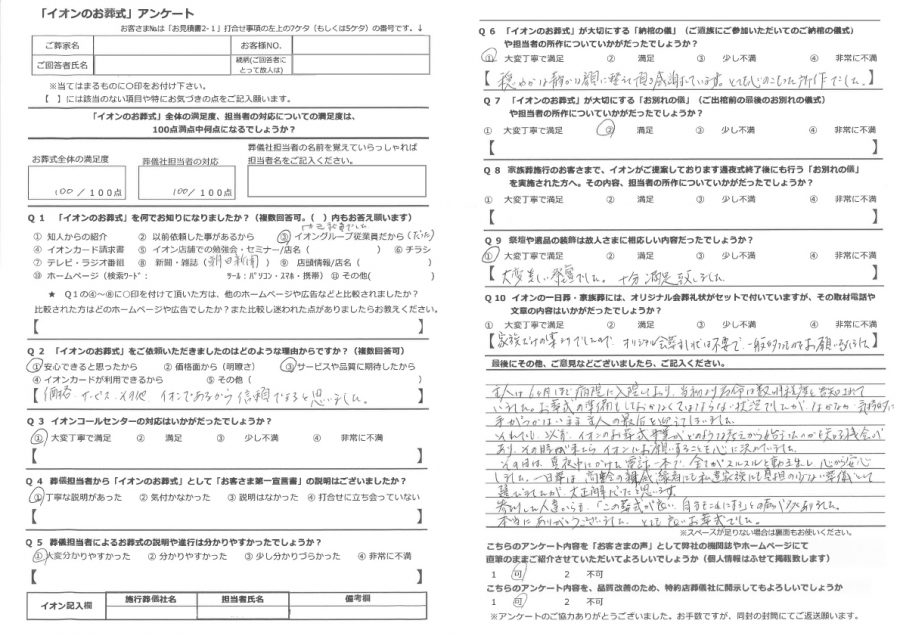 「イオンのお葬式」アンケート
お客さま№は「お見積書2-1」打合せ事項の左上の7ケタ(もしくは5ケタ)の番号です。↓
ご葬家名
お客様NO.
ご回答者氏名
続柄(ご回答者に
とって故人は)
※当てはまるものに〇印をお付け下さい。
【 】には該当のない項目や特にお気づきの点をご記入願います。
「イオンのお葬式」全体の満足度、担当者の対応についての満足度は、
100点満点中何点になるでしょうか?
葬儀社担当者の名前を覚えていらっしゃれば
担当者名をご記入ください。
お葬式全体の満足度
葬儀社担当者の対応
100/100点
100/100点
Q1 「イオンのお葬式」を何でお知りになりましたか?(複数回答可。( )内もお答え願います)
① 知人からの紹介 ② 以前依頼した事があるから ③ イオングループ従業員だから(だった)
④ イオンカード請求書 ⑤ イオン店舗での勉強会・セミナー/店名( ) ⑥ チラシ
⑦ テレビ・ラジオ番組 ⑧ 新聞・雑誌(朝日新聞) ⑨ 店頭情報/店名( )
⑩ ホームページ(検索ワード: ツール:パソコン・スマホ・携帯) ⑪ その他( )
★ Q1の④~⑧に〇印を付けて頂いた方は、他のホームページや広告などと比較されましたか?
比較された方はどのホームページや広告でしたか?また比較し迷われた点がありましたらお教えください。
【 】
Q2 「イオンのお葬式」をご依頼いただきましたのはどのような理由からですか?(複数回答可)
① 安心できると思ったから ② 価格面から(明瞭さ) ③ サービスや品質に期待したから
④ イオンカードが利用できるから ⑤ その他( )
【価格、サービス、その他 イオンであるから信頼できると思いました。】
Q3 イオンコールセンターの対応はいかがだったでしょうか?
① 大変丁寧で満足 ② 満足 ③ 少し不満 ④ 非常に不満
【 】
Q4 葬儀担当者から「イオンのお葬式」として「お客さま第一宣言書」の説明はございましたか?
① 丁寧な説明があった ② 気付かなかった ③ 説明はなかった ④ 打合せに立ち会っていない
【 】
Q5 葬儀担当者によるお葬式の説明や進行は分かりやすかったでしょうか?
① 大変分かりやすかった ② 分かりやすかった ③ 少し分かりづらかった ④ 非常に不満
【 】
イオン記入欄
施行葬儀社名
担当者氏名
備考欄
Q6 「イオンのお葬式」が大切にする「納棺の儀」(ご遺族にご参加いただいてのご納棺の儀式)
や担当者の所作についていかがだったでしょうか?
① 大変丁寧で満足 ② 満足 ③ 少し不満 ④ 非常に不満
【穏やかな静かな顔に整えて頂き感謝しています。とても心のこもった所作でした。】
Q7 「イオンのお葬式」が大切にする「お別れの儀」(ご出棺前の最後のお別れの儀式)
や担当者の所作についていかがだったでしょうか?
① 大変丁寧で満足 ② 満足 ③ 少し不満 ④ 非常に不満
【 】
Q8 家族葬施行のお客さまで、イオンがご提案しております通夜式終了後にも行う「お別れの儀」
を実施された方へ。その内容、担当者の所作についていかがだったでしょうか?
① 大変丁寧で満足 ② 満足 ③ 少し不満 ④ 非常に不満
【 】
Q9 祭壇や遺品の装飾は故人さまに相応しい内容だったでしょうか?
① 大変丁寧で満足 ② 満足 ③ 少し不満 ④ 非常に不満
【大変美しい祭壇でした。十分満足致しました。】
Q10 イオンの一日葬・家族葬には、オリジナル会葬礼状がセットで付いていますが、その取材電話や
文章の内容はいかがだったでしょうか?
① 大変丁寧で満足 ② 満足 ③ 少し不満 ④ 非常に不満
【家族だけの集まりでしたので、オリジナル会葬礼状は不要で、一般的なものをお願い致しました】
最後にその他、ご意見などございましたら、ご記入ください。
主人は 病院に入院しており、
いました。お葬式の準備もしておかなくてはならない状況でしたが、なかなか
主人の最後を迎えてしまいました。
それでも、以前、イオンのお葬式
あり、その時が来たらイオンにお願いすることを心に決めていました。
その日は、真夜中にかけた電話一本で、全てがスムーズルと動き出し、心から安心
しました。一日葬は、高齢の親戚縁者にも私達家族にも負担の少ない葬儀として
選びましたが、大正解だったと思います。
参列した人達からも、「この葬式が良い、自分もこれにする」との声が
本当にありがとうございました。とても良いお葬式でした。
※スペースが足りない場合は裏面もお使いください。
こちらのアンケート内容を「お客さまの声」として弊社の機関誌やホームページにて
直筆のままご紹介させていただいてよろしいでしょうか(個人情報はふせて掲載致します)
1 可 2 不可
こちらのアンケート内容を、品質改善のため、特約店葬儀社に開示してもよろしいでしょうか
1 可 2 不可
※アンケートのご協力ありがとうございました。お手数ですが、同封の封筒にてご返送願います。